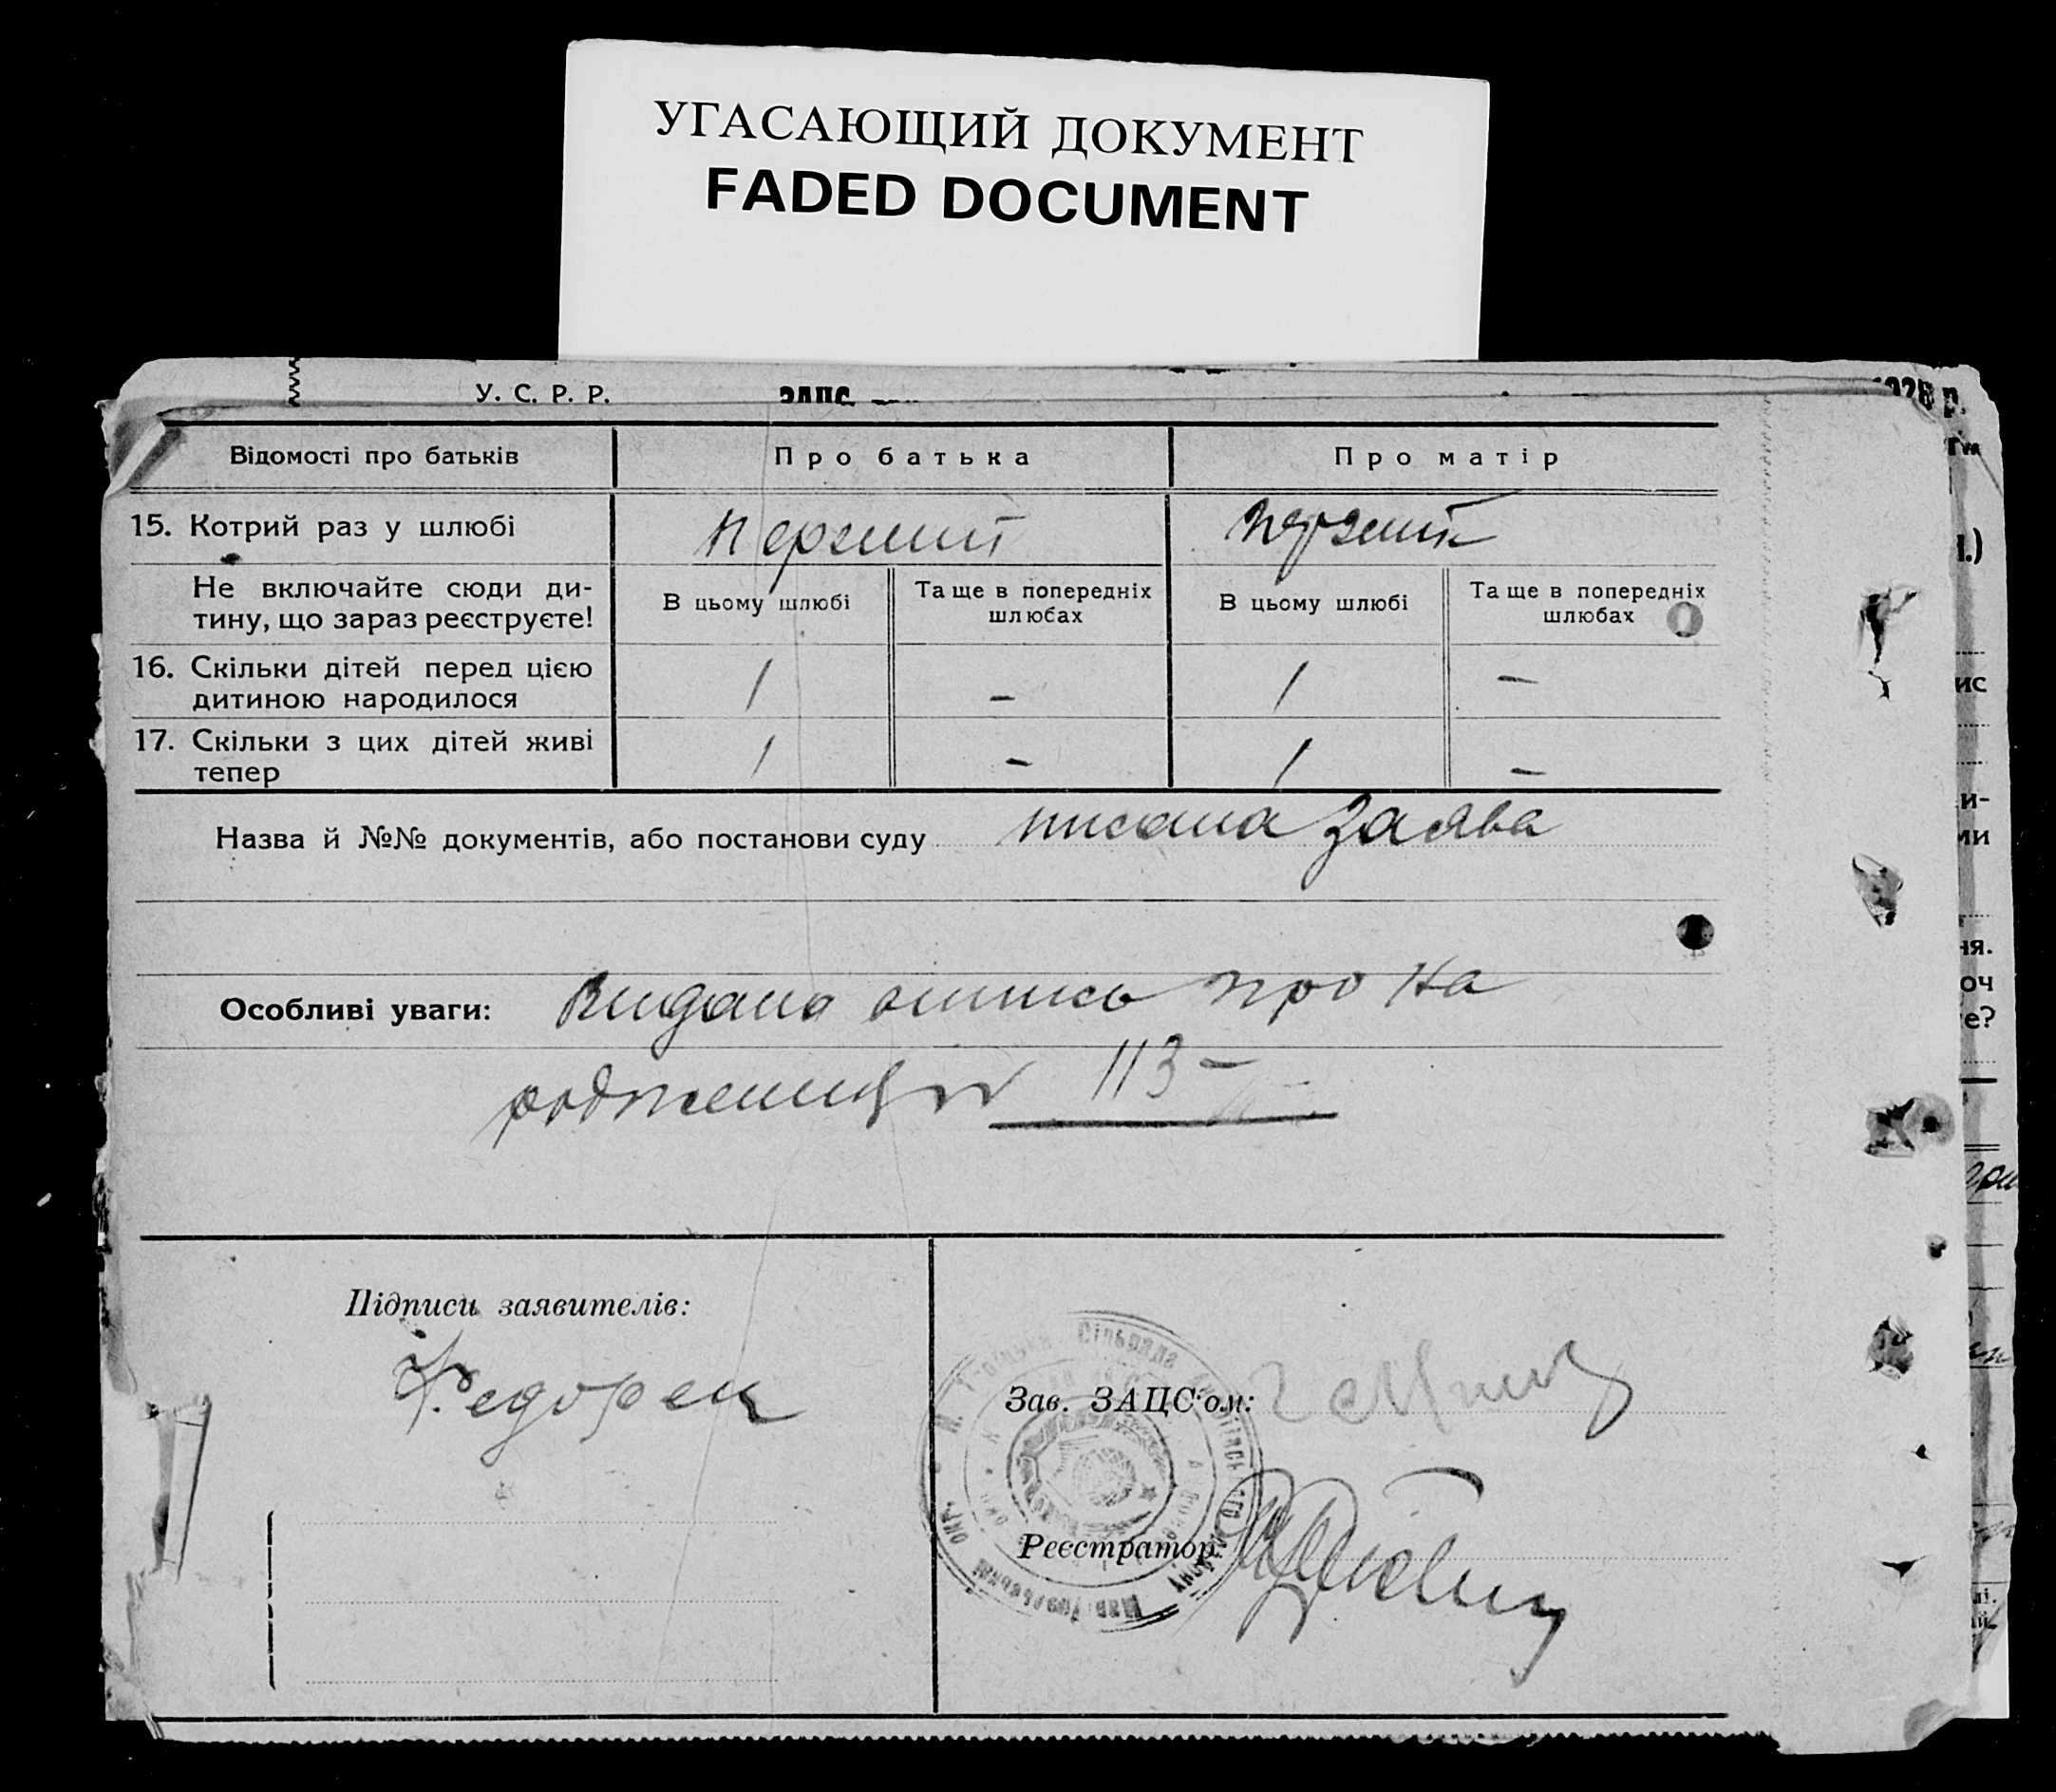 УГАСАЮЩИЙ ДОКУМЕНТ
FADED DOCUMENT
У. С. Р. Р. ЗАПС
Відомості про батьків Про батька Про матір
15. Котрий раз у шлюбі перший перший
Не включайте сюди ди-
тину, що зараз реєструєте!
В цьому шлюбі Та ще в попередніх шлюбах В цьому шлюбі Та ще в попередніх шлюбах
16. Скільки дітей перед цією
дитиною народилося 1 – 1 –
17. Скільки з цих дітей живі
тепер 1 – 1 –
Назва й №№ документів, або постанови суду писана заява
Особливі уваги: Видана випись про на
родження 113
Підписи заявителів:
Федорен
Зав. ЗАЦС'ом:
Реєстратор: